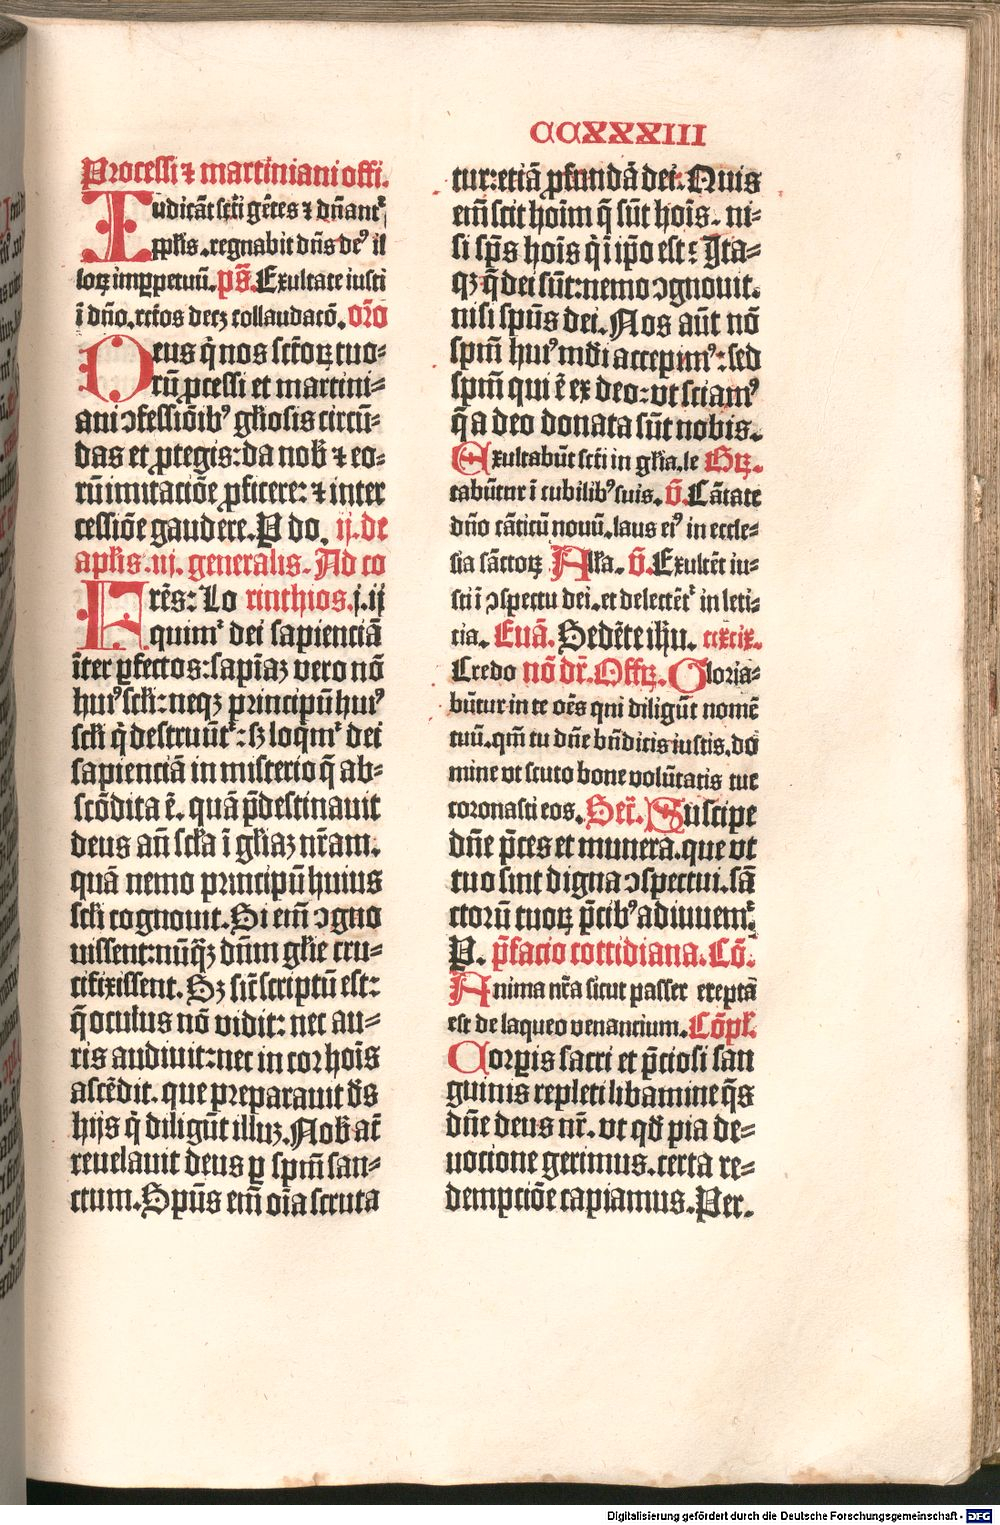 CCXXXIII
Processi ⁊ martiniani offi.
Iudicāt sct̄i gētes ⁊ dn̄ant᷑
pp̄lis. regnabit dn̄s deꝰ il
loꝝ imꝑpetuū. ps̄. Exultate iusti
ī dño. rect̄os decꝫ collaudacō. or̄o
Deus q̄ nos sct̄oꝝ tuo⸗
rū ꝓcessi et martini⸗
ani ꝯfessiōibꝰ gl̄iosis circū⸗
das et ꝓtegis: da nob̄ ⁊ eo⸗
rū imitaciōe ꝓficere: ⁊ inter
cessiōe gaudere. P do. ij. de
apl̄is. iij. generalis. Ad co
Frēs: Lo rinthios. j. ij
quim᷑ dei sapienciā
īter ꝑfectos: sapīaꝫ vero nō
huiꝰ scl̄i: neqꝫ principū huiꝰ
scl̄i q̄ destruūt᷑: sꝫ loq̄m᷑ dei
sapienciā in misterio q̄ ab⸗
scōdita ē. quā p̄destinauit
deus an̄ scl̄a ī gl̄iaꝫ nr̄am.
quā nemo principū huius
scl̄i cognouit. Si em̄ ꝯgno
uissent: nūq̄ꝫ dn̄m gl̄ie cru⸗
cifixissent. Sꝫ sic̄ scriptū est:
q̄ oculus nō vidit: nec au⸗
ris audiuit: nec in cor hoīs
ascēdit. que preparauit ds̄
hijs q̄ diligūt illuꝫ. Nob̄ at̄
reuelauit deus ꝑ spm̄ san⸗
ctum. Spūs em̄ oīa scruta
tur: eciā ꝓfundā dei. Quis
em̄ scit hoīm q̄ sūt hoīs. ni⸗
si sp̄s hoīs q̄ ī ip̄o est? Ita⸗
qꝫ q̄ dei sūt: nemo ꝯgnouit.
nisi spūs dei. Nos aūt nō
spm̄ huiꝰ mūdi accepimꝰ: sed
spm̄ qui ē ex deo: vt sciamꝰ
q̄ a deo donata sūt nobis.
Exultabūt sct̄i in gl̄ia. le Gꝝ.
tabūtur ī cubilibꝰ suis. v̄. Cātate
dño cāticū nouū. laus eiꝰ in eccle⸗
sia sāctoꝝ Alla. v̄. Exultēt iu⸗
sti ī ꝯspectu dei. et delectēt᷑ in leti⸗
cia. Euā. Sedēte ihū. ccxcix.
Credo nō dr̄. Offꝝ. Gloria⸗
būtur in te oēs qui diligūt nomē
tuū. qm̄ tu dn̄e bn̄dicis iustis. do
mine vt scuto bone volūtatis tue
coronasti eos. Secr̄. Suscipe
dn̄e p̄ces et munera. que vt
tuo sint digna ꝯspectui. sā
ctorū tuoꝝ p̄cibꝰ adiuuem᷑.
P. p̄facio cottidiana. Cō.
Anima nr̄a sicut passer ereptā
est de laqueo venancium. Cōpl̄.
Corꝑis sacri et p̄ciosi san
guinis repleti libamine q̄s
dn̄e deus nr̄. vt qd̄ pia de⸗
uocione gerimus. certa re⸗
dempciōe capiamus. Per.
Digitalisierung gefördert durch die Deutsche Forschungsgemeinschaft - DFG